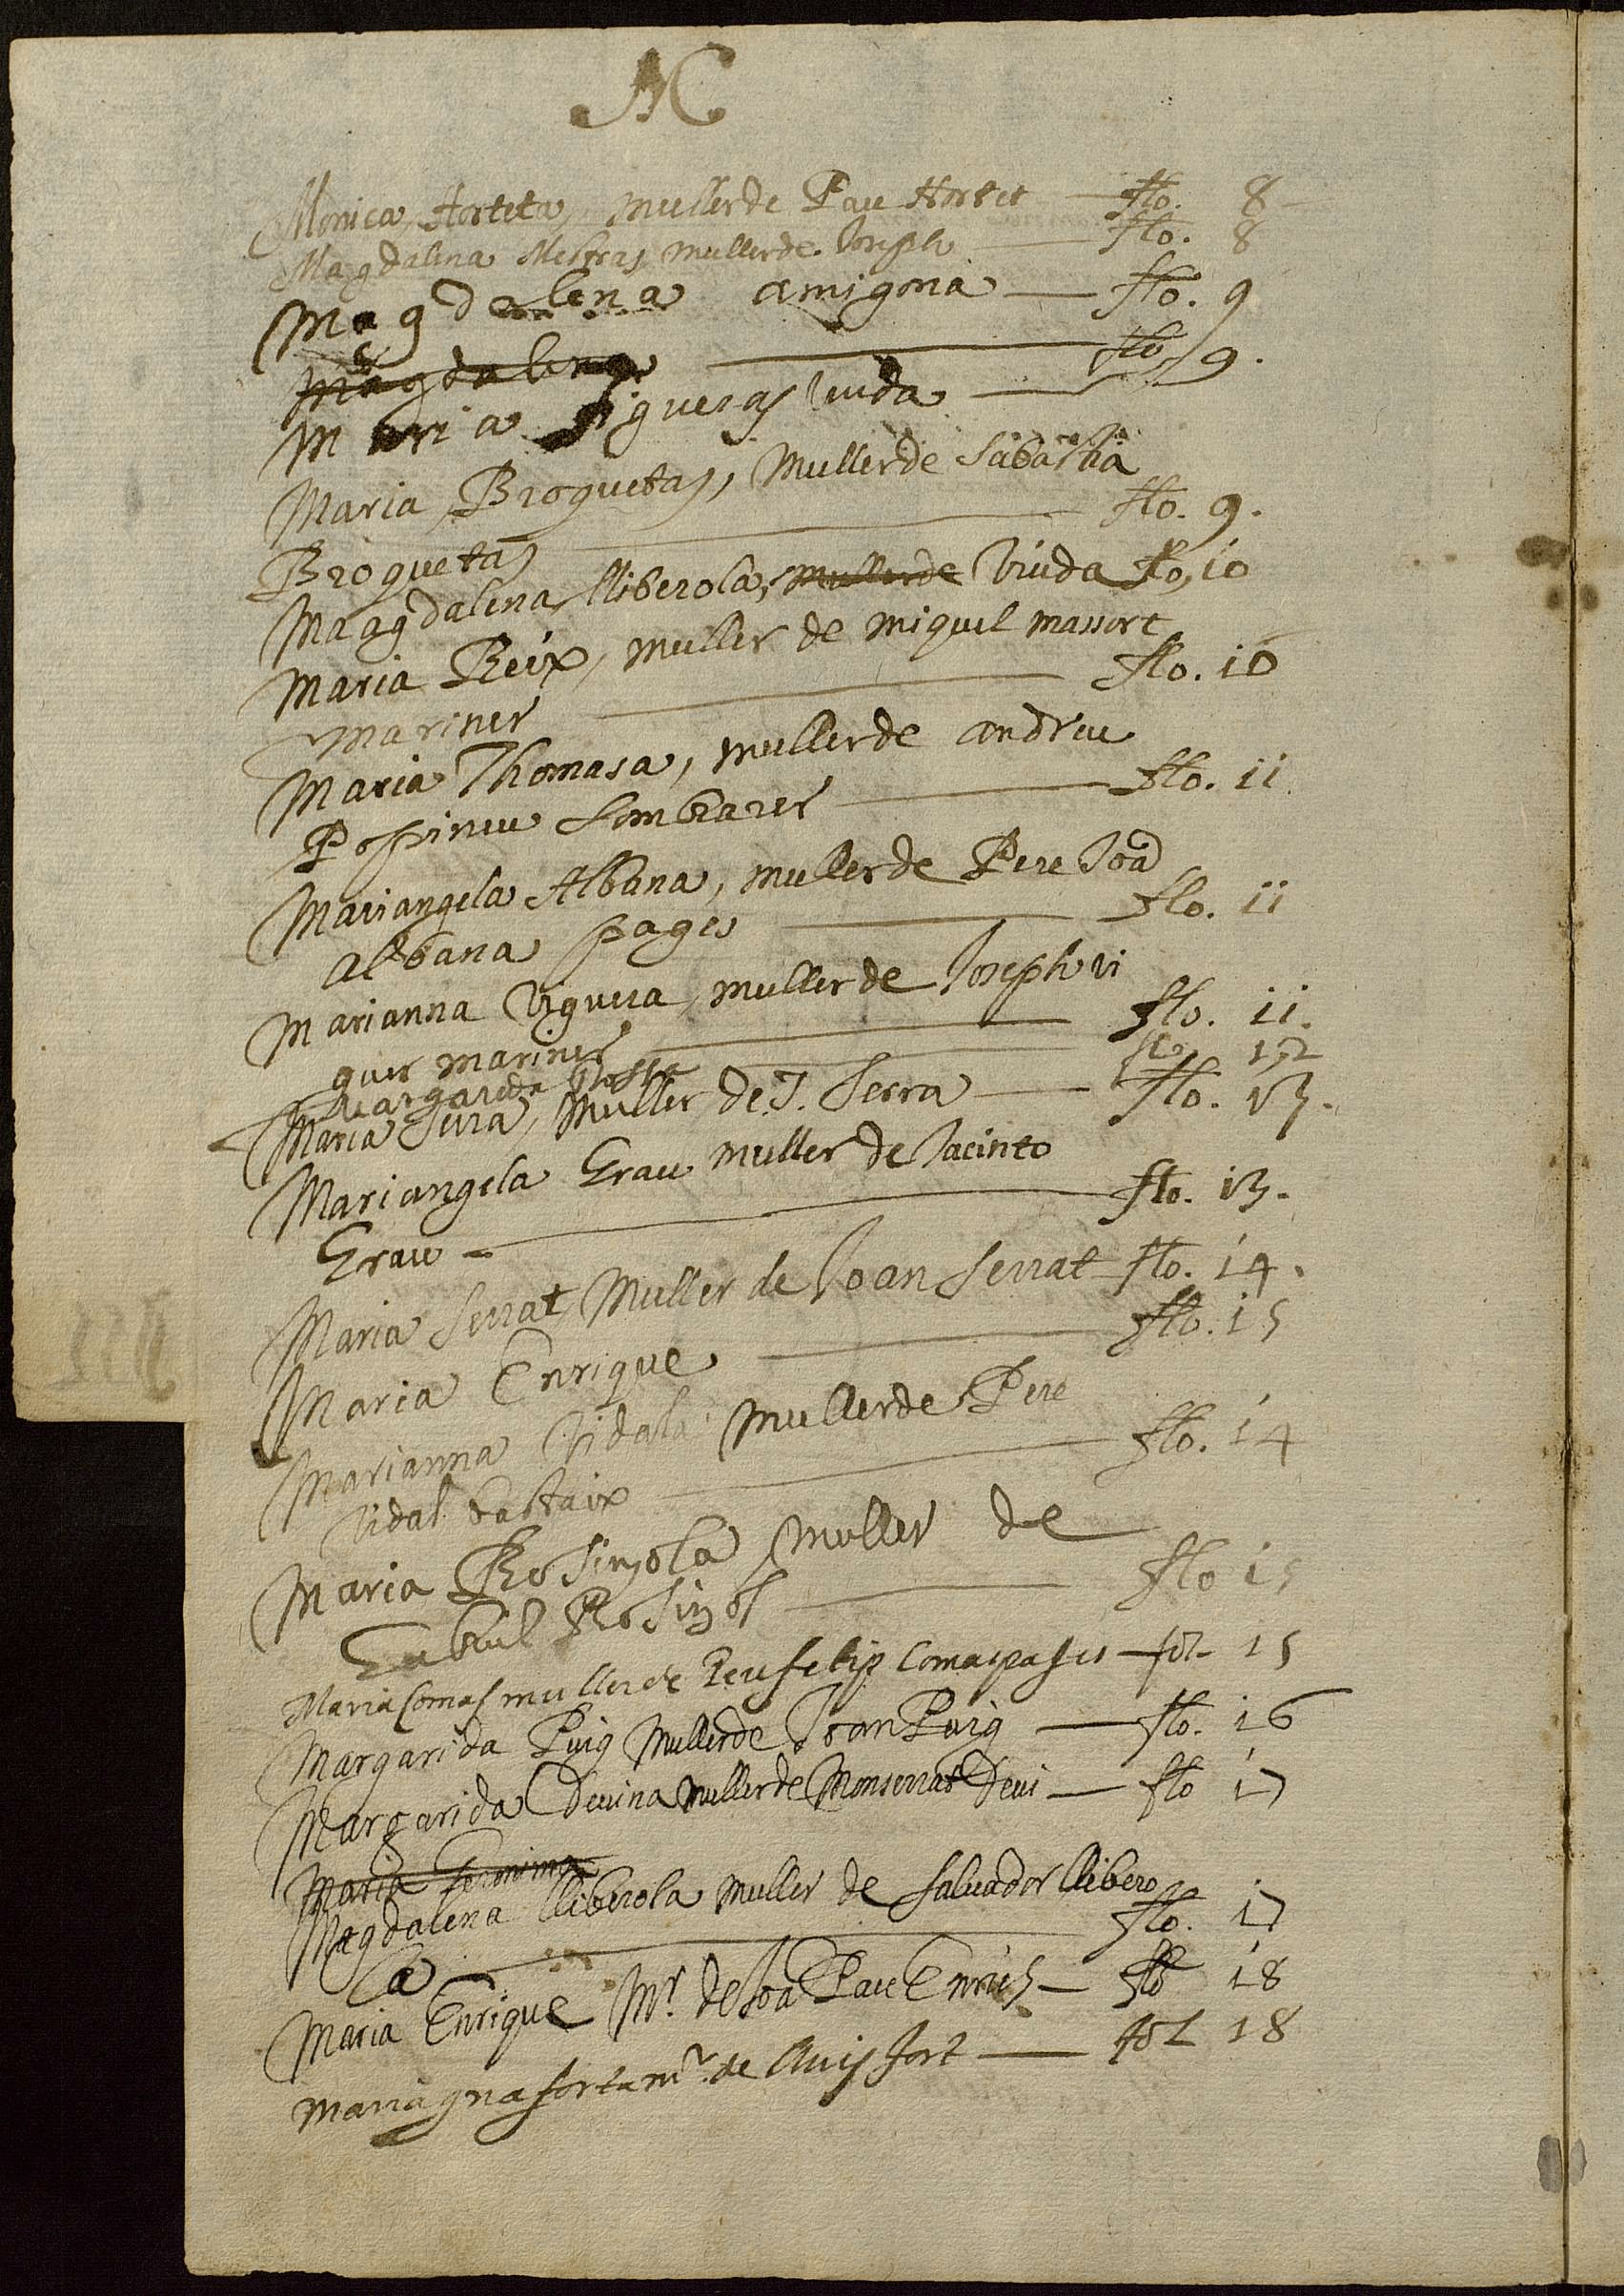 M
Monica Horteta, muller de Pau Hortet — flo. 8
Magdalena Mestras muller de Joseph — flo. 8
Magdalena amigona — flo. 9
Magdalena
Maria Figueras viuda — flo. 9.
Maria Broquetas, muller de Sabastia
Broquetas — flo. 9.
Maagdalena lliberola, muller de viuda flo. 10
Maria Reix, muller de miquel massort
mariner — flo. 10
Maria Thomasa, muller de andreu
Pospineu Sombrarer — flo. 11
Mariangela Albana, muller de Pere Joa
albana pages — flo. 11
Marianna Viguera, muller de Joseph vi
guer mariner — flo. 11.
Margarida — flo. 12
Maria Serra, muller de J. Serra — flo. 13.
Mariangela Grau muller de Jacinto
Grau — flo. 13.
Maria Serrat, Muller de Joan Serrat flo. 14.
Maria Enrique — flo. 15
Marianna Vidala muller de Pere
Vidal bastaix — flo. 14
Maria Rosinyola Muller de
Gabriel Rosinyol — flo 15
Maria Comas muller de Pere felip Comas pages — fol. 15
Margarida Puig Muller de Joan Puig — flo. 16
Margarida Devina muller de Monserrat Devi — flo 17
Maria Geronima
Magdalena lliberola muller de Salvador llibero
la — flo. 17
Maria Enrique Mr. de Joa Pau Enrich — flo 18
Mariagna forta mr. de lluis fort — fol 18